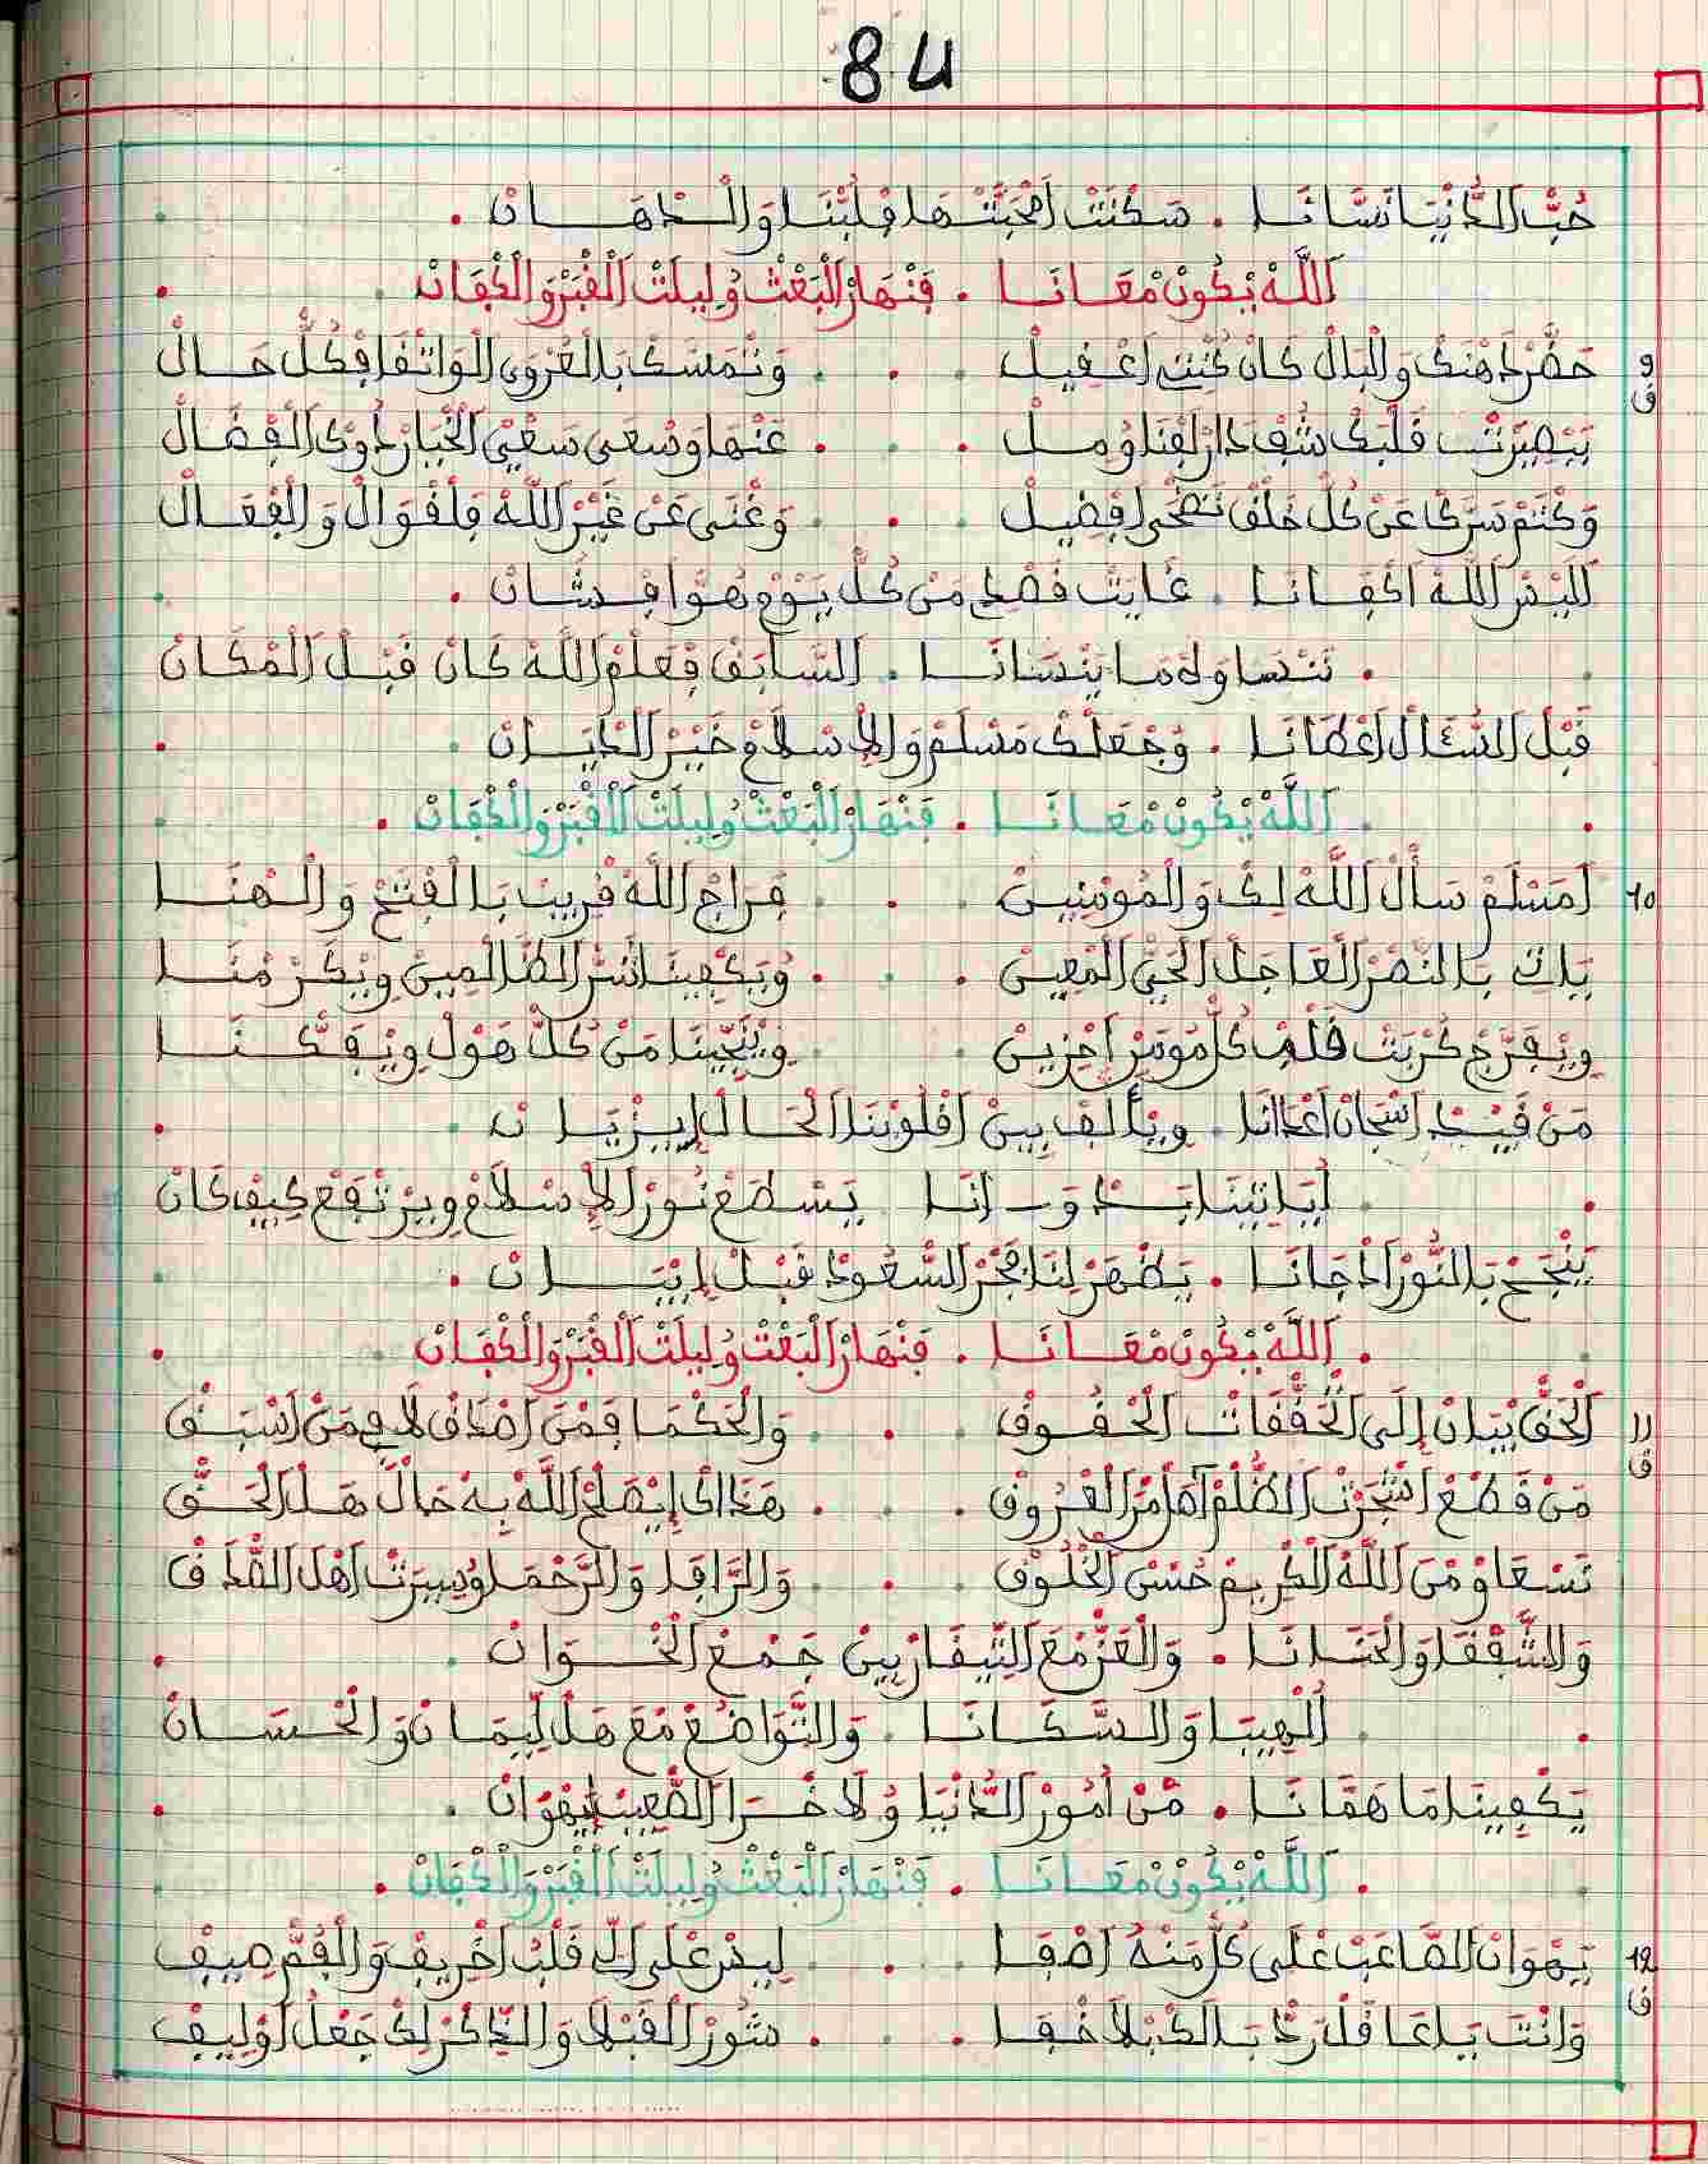 84
حُبّ الدُّنْيَا نَسَّاتْنَا . سَكْنَتْ امْحَبَّتْهَا فْلَبْنَا وَالْدْهَانْ .
اَللَّهْ يْكُونْ مْعَانَا . فَنْهَارْ الْبَعْثْ وُلِيلَتْ اَلْقْبَرْ وَالْكْفَانْ
9 حَضَّرْ دَهْنَكْ وَالْبَالْ كَانْ كُنْتِ اعْفِيلْ . وَتْمَسَّكْ بَالْعُرْوَى الْوَاتْقَا فِكُلّ حَالْ
ق بَبْصِيرْتْ قَلْبَكْ شُفْ دَارْ لَفْنَا وُمِلْ . عَنْهَا وَسْعَى سَعْيْ الْخْيَارْ دَوِى الْفْضَالْ
وَكْتَمْ سَرَّكْ عَنْ كُلّ خَلْقْ تَضْحَى افْضِيلْ . وَغْنَى عَنْ غَيْرْ اللَّهْ فِلَفْوَالْ وَالْفْعَالْ
اَلِيسْ اللَّهْ اكْفَانَا . غَايَتْ قَصْدِ مَنْ كُلّ يَوْمْ هُوَّا فِشَانْ .
. نَنْسَاوَهْ مَا يَنْسَانَا . اَلسَّابَقْ فِعَلْمْ اللَّهْ كَانْ قَبْلْ اَلْمْكَانْ
قَبْلْ السُّئَالْ اعْطَانَا . وَجْعَلْكْ مَسْلَمْ وَالِاسْلَامْ خَيْرْ الَدْيَانْ
اَللَّهْ يْكُونْ مْعَانَا . فَنْهَارْ الْبَعْثْ وُلِيلَتْ اَلْقْبَرْ وَالْكْفَانْ .
10 اَمَسْلَمْ سَأَلْ اللَّهْ لِكْ وَالْمُومْنِينْ . فَرَاجْ اللَّهْ قْرِيبْ بَالْفْتَحْ وَالْهْنَا
يَاتِ بَالنْصَرْ الْعَاجَلْ الْحَيّ الْمْعِينْ . وُيَكْفِينَا شَرّ الظَّالْمِينْ وِيْكَرْمْنَا
وِيْفَرَّجْ كُرْبَتْ قَلْبْ كُلّ مُومَنْ احْزِينْ . وِيْنَجِّينَا مَنْ كُلّ هَوْلْ وِيْفَكْنَا
مَنْ قَيْدْ اسْجَانْ اعْدَانَا . وِيْأَلَّفْ بِينْ اقْلُوبْنَا الْحَالْ إِيزْيَانْ .
. اَيَاتِينَا بَدْوَانَا يَسْطَعْ نُورْ الِاسْلَامْ وِيَرْتْفَعْ كِيفْ كَانْ
يَنْجَحْ بَالنُّورْ ادْجَانَا . يَظْهَرْ لِنَا فْجَرْ السُّعُودْ قَبْلْ إِيبَانْ .
. اَللَّهْ يْكُونْ مْعَانَا . فَنْهَارْ الْبَعْثْ وُلِيلَتْ اَلْقْبَرْ وَالْكْفَانْ .
11 اَلْحَقّ يْبَانْ إِلَى اَتْحَقّقَاتْ الْحْقُوقْ . وَالْحَكْمَا فِمَنْ اصْدَاقْ لَا فِمَنْ اسْبَقْ
ق مَنْ قَطْعْ اشْجَرْتْ الظُّلْمْ اصْلْ مْرّ الْعْرُوقْ . هَدَاكْ إِيصَلْحْ اللَّهْ بِهْ حَالْ هَلْ الْحَقّ
نَسْعَاوْ مْنْ اللَّهْ الْكْرِيمْ حُسْنْ الْخْلُوقْ . وَالرَّافَا وَالرَّحْمَا وُسِيرْتْ اهْلْ الصَّدْقْ
وَالشّفْقَا وَالْحْنَانَا . وَالْعَزّ مْعَ التِّيقَارْ بِينْ جَمْعْ الْخْوَانْ .
. اَلْهِيبَا وَالسَّكَانَا . وَالتَّوَاضُعْ مْعَ هَلْ لِيمَانْ وَالْحْسَانْ
يَكْفِينَا مَا هَمَّانَا . مْنْ اُمُورْ الدُّنْيَا وُلَاخْرَا الصّْعِيبْ إِيهْوَانْ .
. اَللَّهْ يْكُونْ مْعَانَا . فَنْهَارْ الْبَعْثْ وُلِيلَتْ اَلْقْبَرْ وَالْكْفَانْ .
12 يَهْوَانْ الصَّاعَبْ عْلَى كُلّ مَنْهُ اصْفَا . لِيسْ عْلَى الِّي قَلْبُ اخْرِيفْ وَالْفُمّ صِيفْ
ق وَانْتَ يَا عَاقَلْ رَدّ بَالْكْ بْلَا خْفَا . شُورْ الْقَبْلَا وَالدَّاكْرْ لِكْ جَعْلُ اوْلِيفْ